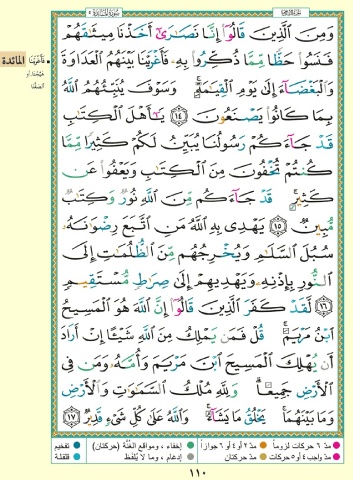 سورة المائدة ٥
وَمِنَ ٱلَّذِينَ قَالُوٓاْ إِنَّا نَصَٰرَىٰٓ أَخَذْنَا مِيثَٰقَهُمْ
فَنَسُواْ حَظًّا مِّمَّا ذُكِّرُواْ بِهِۦ فَأَغْرَيْنَا بَيْنَهُمُ ٱلْعَدَاوَةَ
وَٱلْبَغْضَآءَ إِلَىٰ يَوْمِ ٱلْقِيَٰمَةِۚ وَسَوْفَ يُنَبِّئُهُمُ ٱللَّهُ
بِمَا كَانُواْ يَصْنَعُونَ ١٤ يَٰٓأَهْلَ ٱلْكِتَٰبِ
قَدْ جَآءَكُمْ رَسُولُنَا يُبَيِّنُ لَكُمْ كَثِيرًا مِّمَّا
كُنتُمْ تُخْفُونَ مِنَ ٱلْكِتَٰبِ وَيَعْفُواْ عَن
كَثِيرٍۚ قَدْ جَآءَكُم مِّنَ ٱللَّهِ نُورٌ وَكِتَٰبٌ
مُّبِينٌ ١٥ يَهْدِى بِهِ ٱللَّهُ مَنِ ٱتَّبَعَ رِضْوَٰنَهُۥ
سُبُلَ ٱلسَّلَٰمِ وَيُخْرِجُهُم مِّنَ ٱلظُّلُمَٰتِ إِلَى
ٱلنُّورِ بِإِذْنِهِۦ وَيَهْدِيهِمْ إِلَىٰ صِرَٰطٍ مُّسْتَقِيمٍ
١٦ لَّقَدْ كَفَرَ ٱلَّذِينَ قَالُوٓاْ إِنَّ ٱللَّهَ هُوَ ٱلْمَسِيحُ
ٱبْنُ مَرْيَمَۚ قُلْ فَمَن يَمْلِكُ مِنَ ٱللَّهِ شَيْـًٔا إِنْ أَرَادَ
أَن يُهْلِكَ ٱلْمَسِيحَ ٱبْنَ مَرْيَمَ وَأُمَّهُۥ وَمَن فِى
ٱلْأَرْضِ جَمِيعًاۗ وَلِلَّهِ مُلْكُ ٱلسَّمَٰوَٰتِ وَٱلْأَرْضِ
وَمَا بَيْنَهُمَاۚ يَخْلُقُ مَا يَشَآءُۚ وَٱللَّهُ عَلَىٰ كُلِّ شَىْءٍ قَدِيرٌ ١٧
المائدة
فَأَغْرَيْنَا
هيّجنا أو
ألصقنا
مدّ ٦ حركات لزوماً مدّ ٢ أو ٤ أو ٦ جوازاً إخفاء، ومواقع الغُنَّة (حركتان) تفخيم
مدّ واجب ٤ أو ٥ حركات مدّ حركتان إدغام، وما لا يُلفظ قلقلة
١١٠